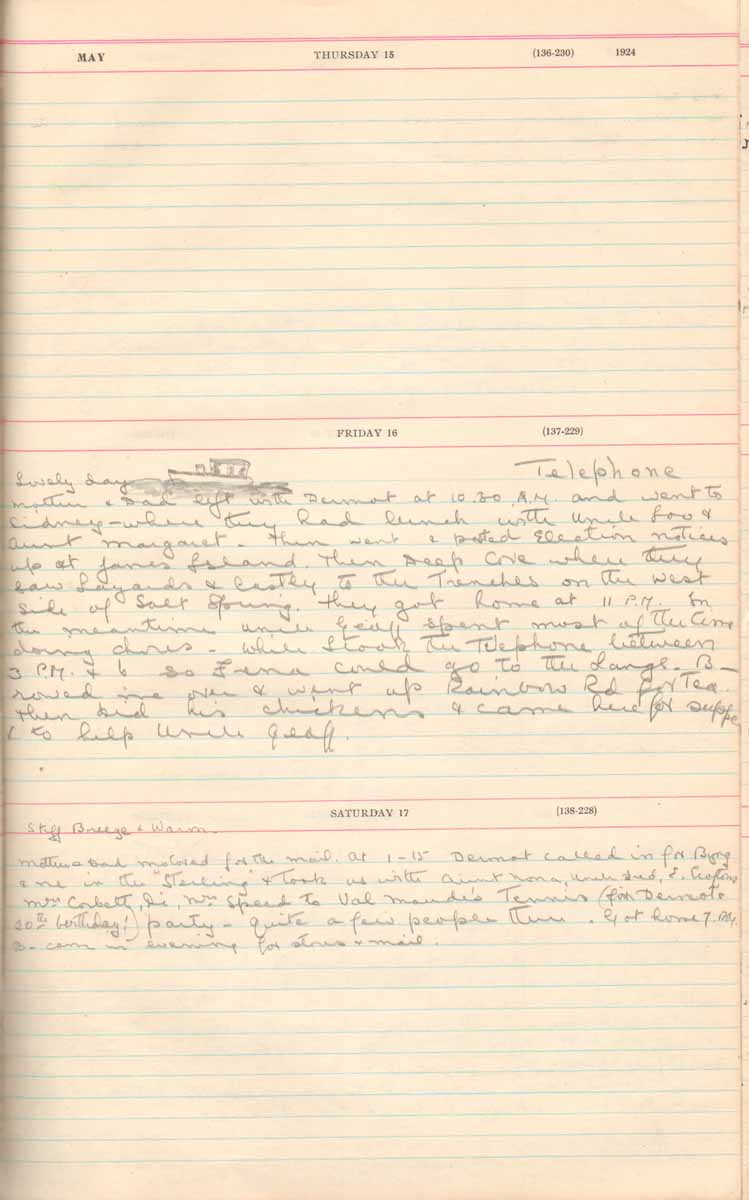 MAY THURSDAY 15 (136-230) 1924
FRIDAY 16 (137-229)
Telephone
Lovely day
Mother & Dad left with Dermot at 10.30 A.M. and went to
Sidney - where they had lunch with Uncle Low &
Aunt Margaret. Then went & posted Election notices
up at James Island. Then Deep Cove where they
saw Layards & lastly to the Trenches on the West
side of Salt Spring. They got home at 11 P.M. In
the meantime Uncle Geoff spent most of the time
doing chores - while I took the Telephone between
3 P.M. & 6 so Zena could go to the Langs. B-
rowed me over & went up Rainbow Rd for Tea.
then did his chickens & came here for supper
& to help Uncle Geoff.
SATURDAY 17 (138-228)
Stiff Breeze & Warm.
Mother & Dad motored for the mail. At 1-15 Dermot called in for Byng
& me in the "Sterling" & took us with Aunt Nona, Uncle Fred, E. Croftons
Mrs Corbett, Di, Mrs Speed to Val Maude's Tennis (for Dermot's
20th birthday!) party - quite a few people there. Got home 7. P.M.
B- came in evening for stores & mail.